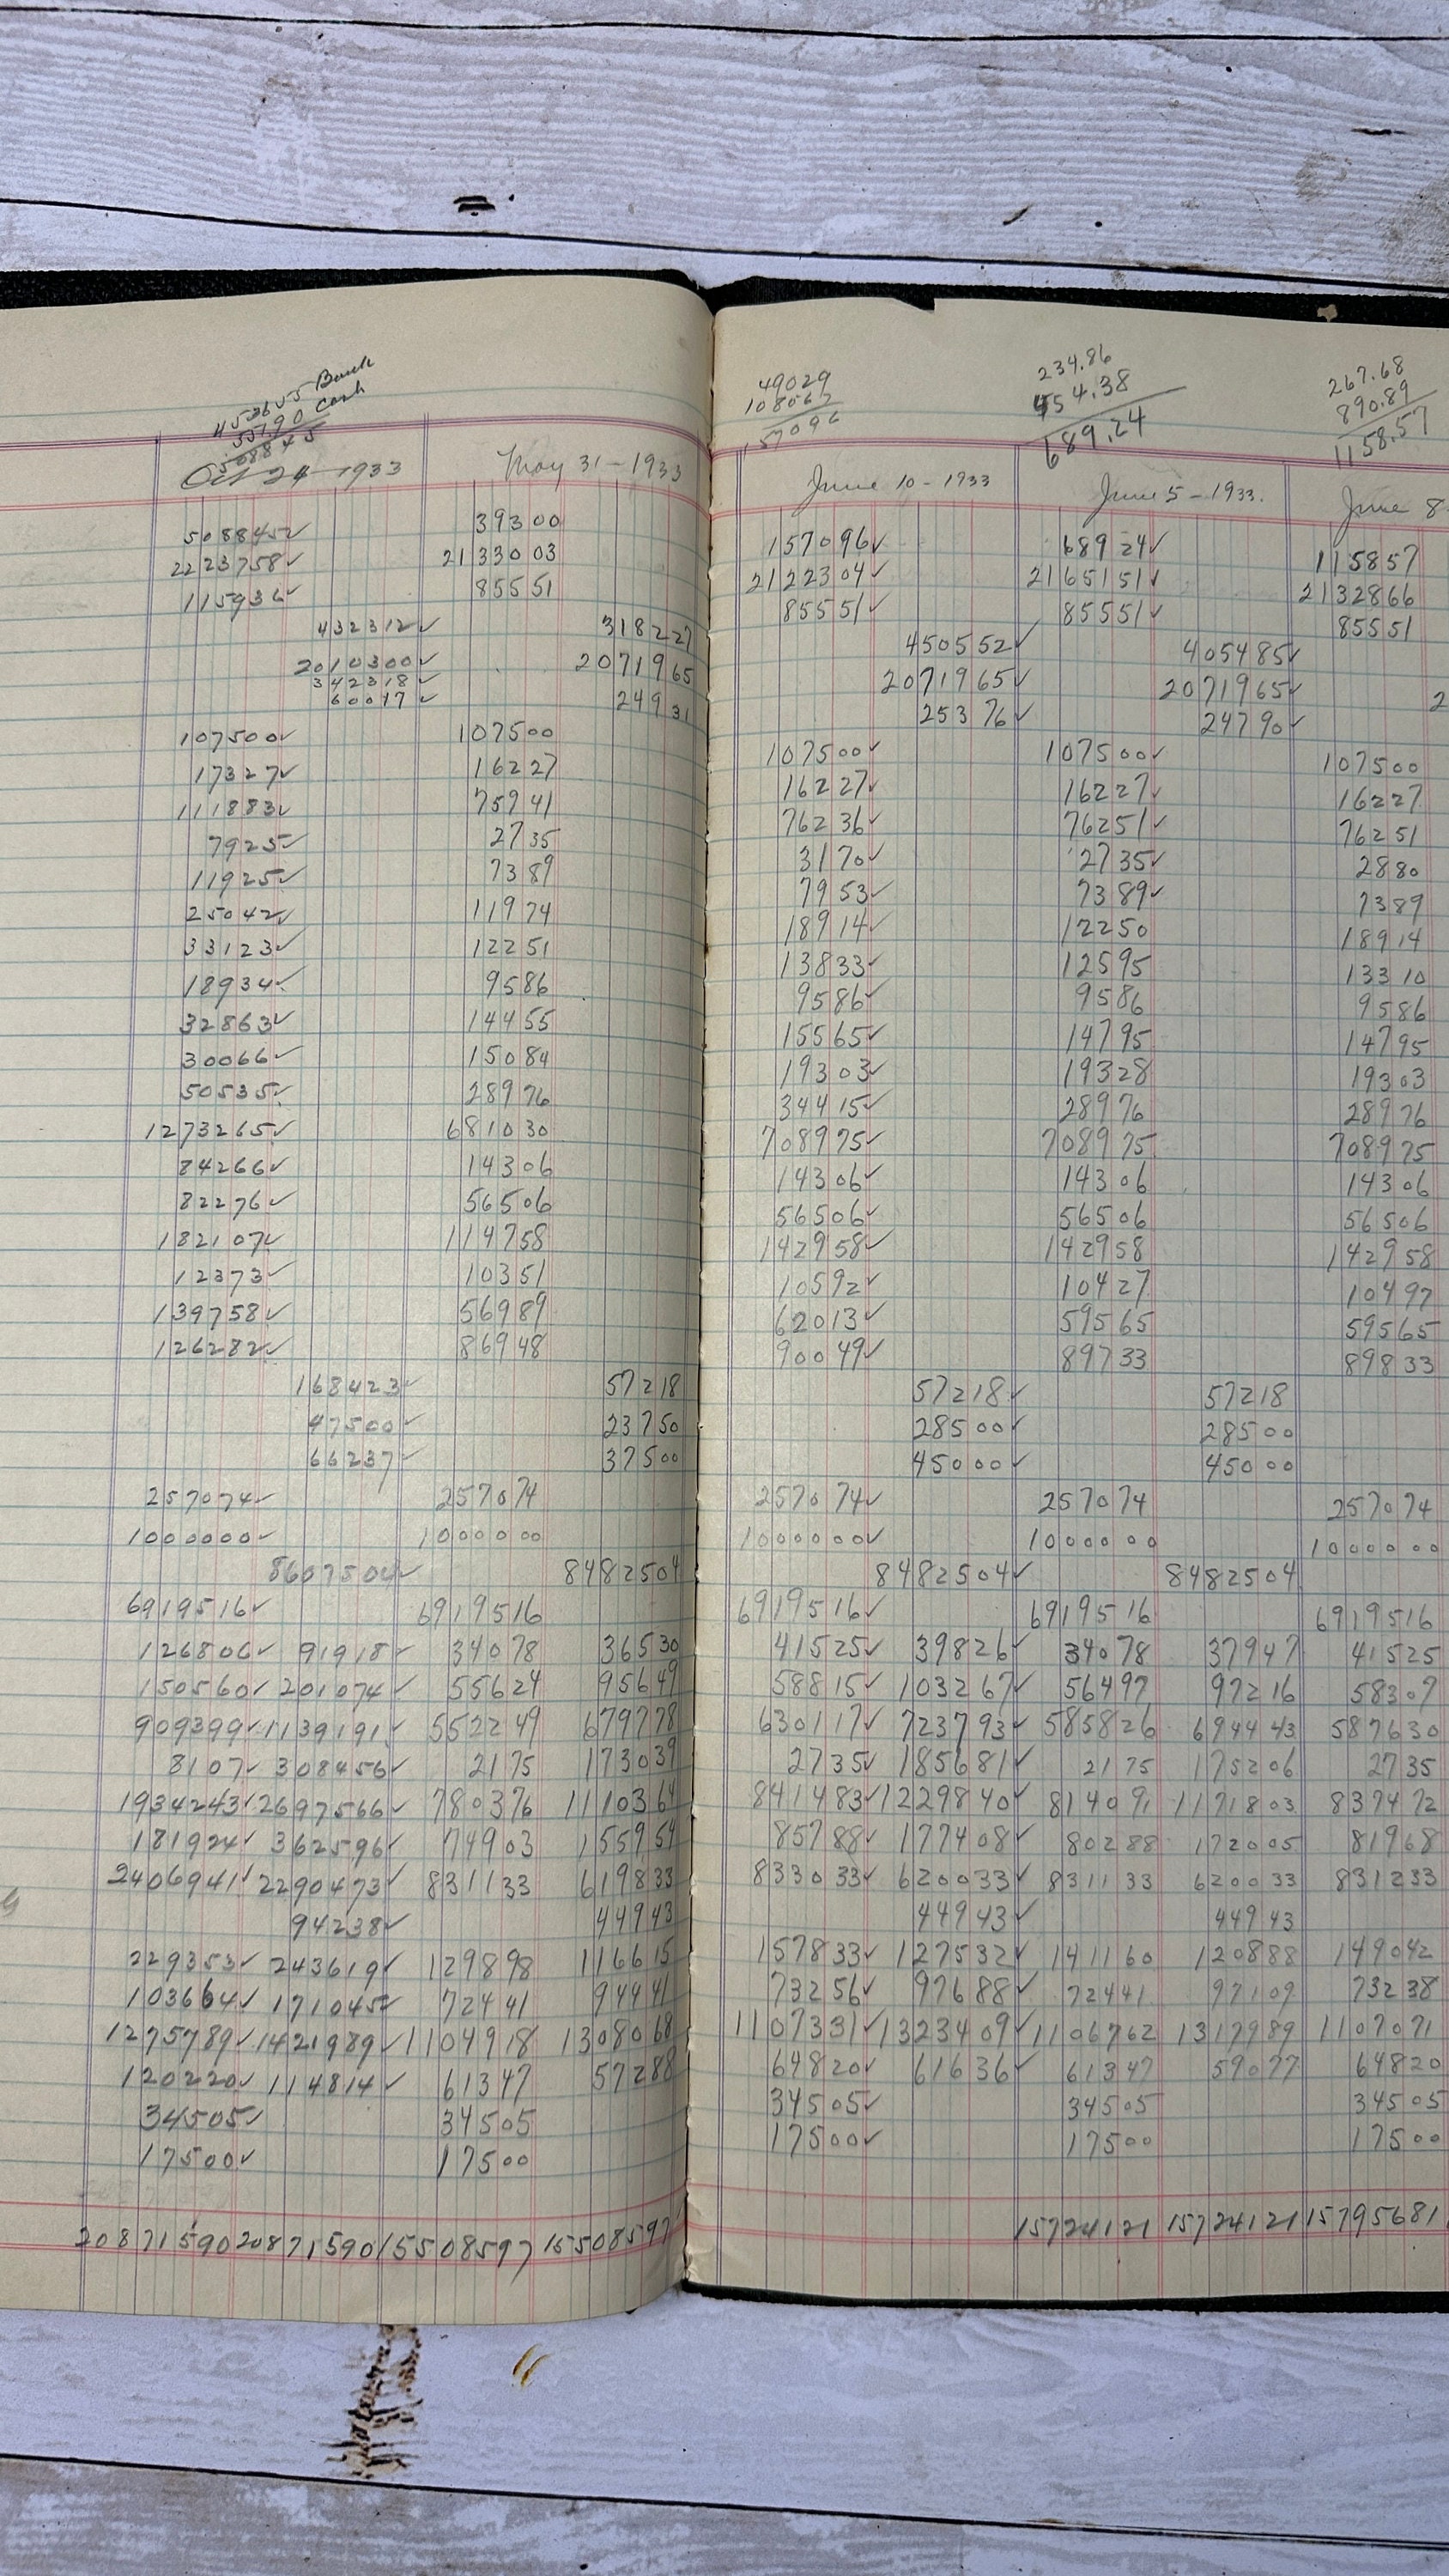 453655 Bank
55190 Cash
508845
Oct 24-1933
May 31-1933
508845✓ 39300
2223758✓ 2133003
115936✓ 85551
432312✓ 318227
2010300✓ 2071965
342318✓
60017✓ 24931
107500✓ 107500
17327✓ 16227
111883✓ 75941
7925✓ 2735
11925✓ 7389
25042✓ 11974
33123✓ 12251
18934✓ 9586
32863✓ 14455
30066✓ 15084
50535✓ 28976
1273265✓ 681030
84266✓ 14306
82276✓ 56506
182107✓ 114758
12373✓ 10351
139758✓ 56989
126282✓ 86948
168423✓ 57218
47500✓ 23750
66237✓ 37500
257074✓ 257074
1000000✓ 1000000
8607504✓ 8482504
6919516✓ 6919516
126806✓ 91918✓ 34078 36530
150560✓ 201074✓ 55624 95649
909399✓ 1139191✓ 552249 679778
8107✓ 308456✓ 2175 173039
1934243✓ 2697566✓ 780376 1110364
181924✓ 362596✓ 74903 155954
2406941✓ 2290473✓ 831133 619833
94238✓ 44943
229353✓ 243619✓ 129898 116615
103664✓ 171045✓ 72441 94441
1275789✓ 1421989✓ 1104918 1308068
120220✓ 114814✓ 61347 57288
34505✓ 34505
17500✓ 17500
20871590 20871590 15508597 15508597
49029
108067
57096
234.86
454.38
689.24
267.68
890.89
1158.57
June 10-1933
June 5-1933.
June 8
157096✓ 68924✓ 115857
2122304✓ 2165151✓ 2132866
85551✓ 85551✓ 85551
450552✓ 405485✓
2071965✓ 2071965✓ 2
25376✓ 24790✓
107500✓ 107500✓ 107500
16227✓ 16227✓ 16227
76236✓ 76251✓ 76251
3170✓ 2735✓ 2880
7953✓ 7389✓ 7389
18914✓ 12250 18914
13833✓ 12595 13310
9586✓ 9586 9586
15565✓ 14795 14795
19303✓ 19328 19303
34415✓ 28976 28976
708975✓ 708975 708975
14306✓ 14306 14306
56506✓ 56506 56506
142958✓ 142958 142958
10592✓ 10427 10497
62013✓ 59565 59565
90049✓ 89733 89833
57218✓ 57218
28500✓ 28500
45000✓ 45000
257074✓ 257074 257074
1000000✓ 1000000 1000000
8482504✓ 8482504
6919516✓ 6919516 6919516
41525✓ 39826✓ 34078 37947 41525
58815✓ 103267✓ 56497 97216 58307
630117✓ 723793✓ 585826 694443 587630
2735✓ 185681✓ 2175 175206 2735
841483✓ 1229840✓ 814091 1171803 837472
85788✓ 177408✓ 80288 172005 81968
833033✓ 620033✓ 831133 620033 831233
44943✓ 44943
157833✓ 127532✓ 141160 120888 149042
73256✓ 97688✓ 72441 97109 73238
1107331✓ 1323409✓ 1106762 1317989 1107071
64820✓ 61636✓ 61347 59077 64820
34505✓ 34505 34505
17500✓ 17500 17500
15724121 15724121 15795681